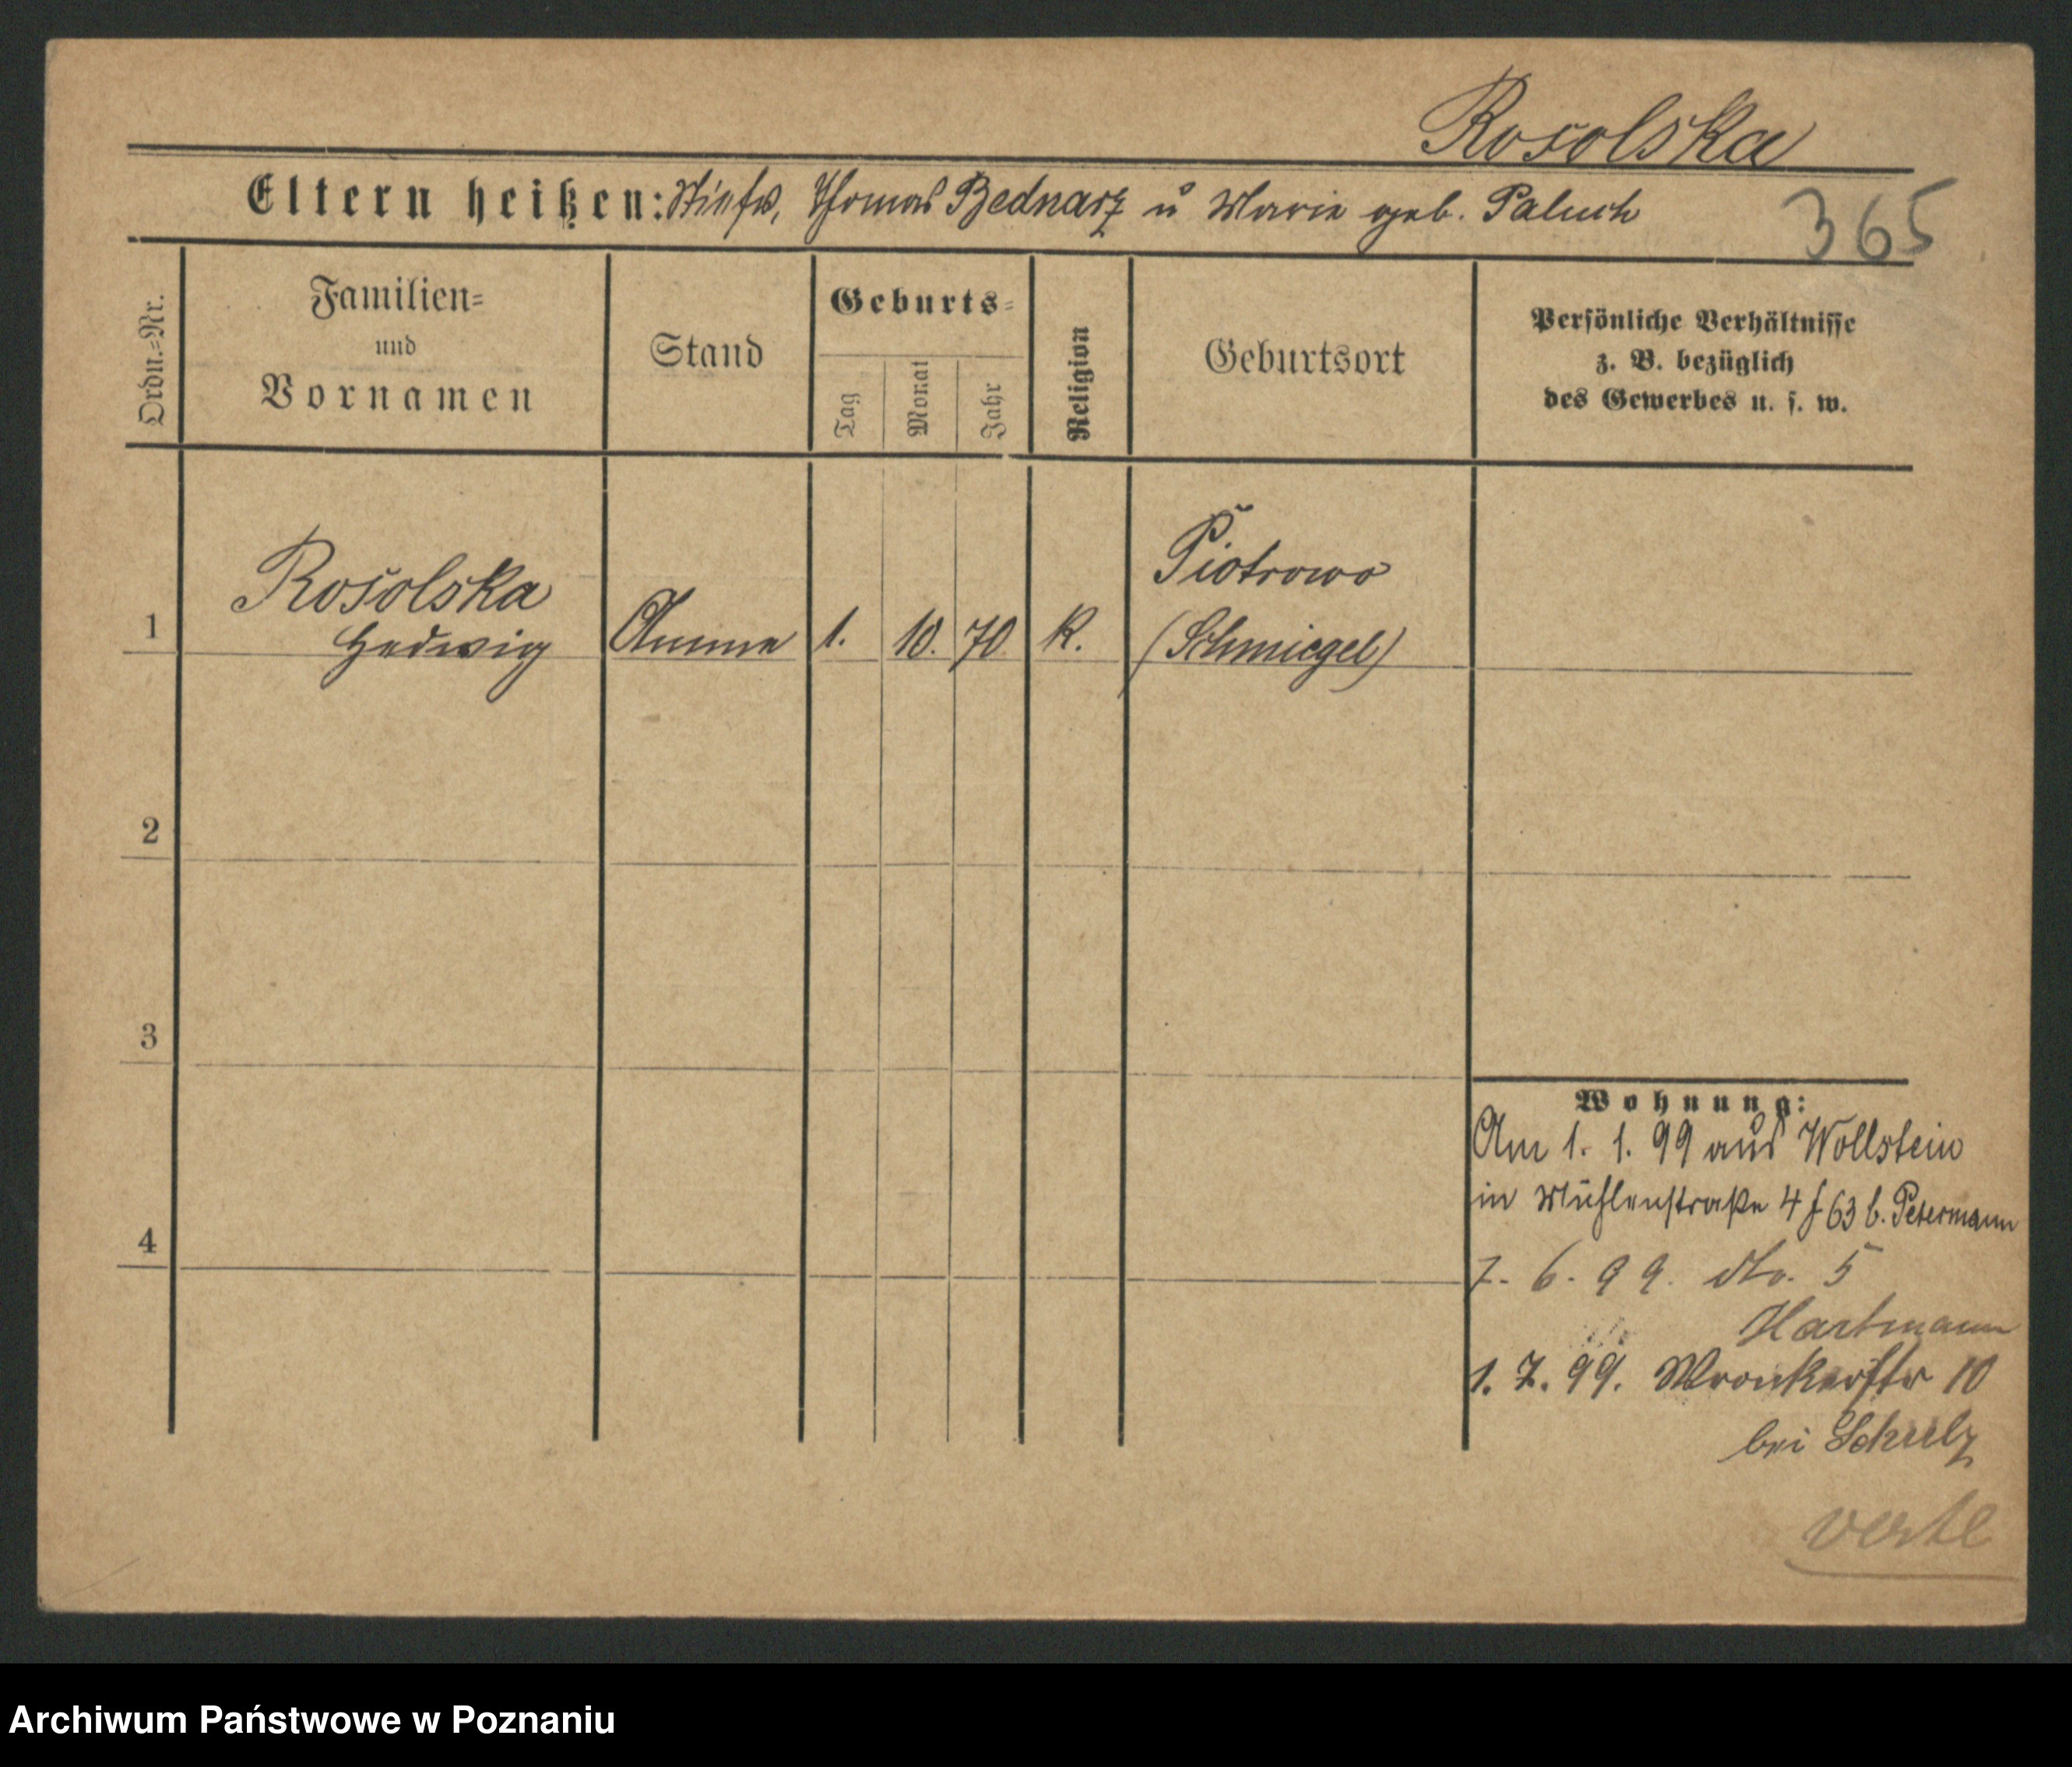 Rosolska
Eltern heißen: Thomas Bednarz u Marie geb. Paluch
365
Ordn.=Nr.
Familien=
und
Vornamen
Stand
Geburts=
Tag
Monat
Jahr
Religion
Geburtsort
Persönliche Verhältnisse
z. B. bezüglich
des Gewerbes u. s. w.
1
Rosolska
Hedwig
Amme
1.
10.
70
K.
Piotrowo
(Schmiegel)
2
3
4
Wohnung:
Am 1. 1. 99 aus Wollstein
in Mühlenstraße 4 f 63 b. Petermann
7. 6. 99. dto. 5
Hartmann
1. 7. 99. Wronkerstr 10
bei Schulz
verte
Archiwum Państwowe w Poznaniu